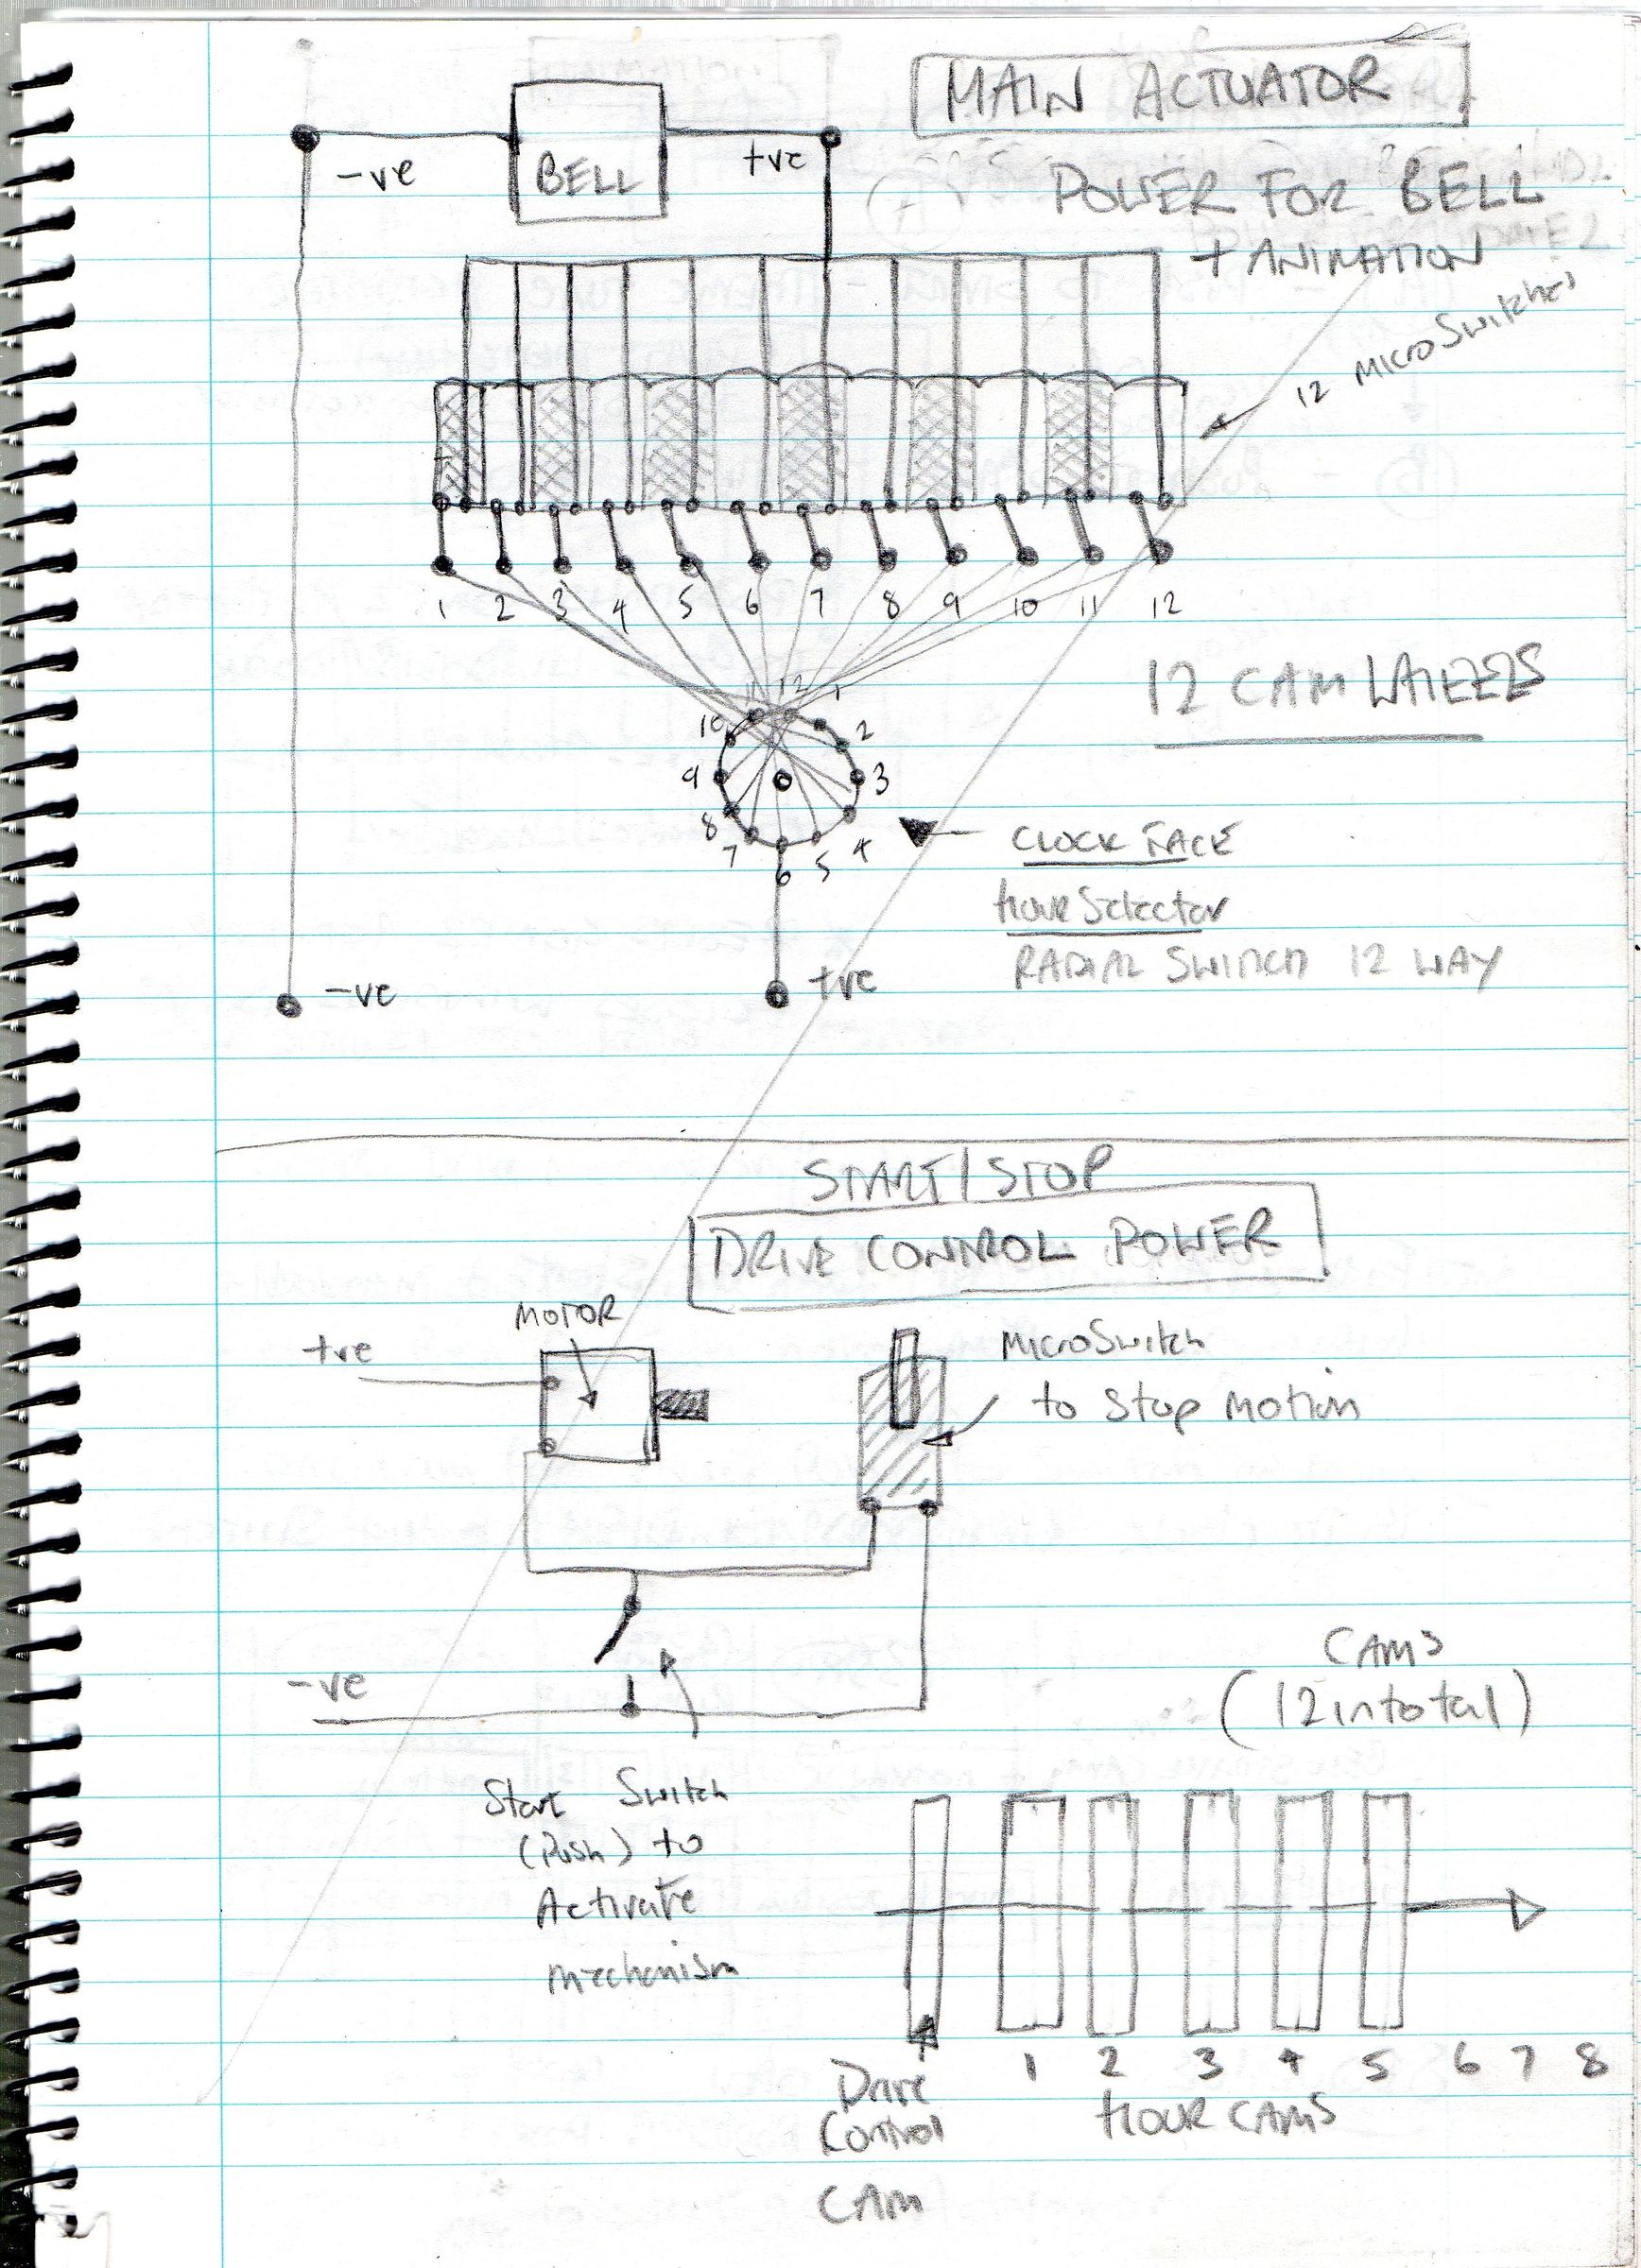 MAIN ACTUATOR
BELL
-ve
+ve
POWER FOR BELL
+ ANIMATION
12 MICROSwitches
1 2 3 4 5 6 7 8 9 10 11 12
12 CAM WHEELS
10 11 12 1
2
9 3
8 4
7 6 5
CLOCK FACE
HOUR Selector
RADIAL SWITCH 12 WAY
-ve
+ve
START/STOP
DRIVE CONTROL POWER
MOTOR
+ve
MICROSwitch
to Stop Motion
-ve
CAMS
(12 in total)
Start Switch
(Push) to
Activate
Mechanism
1 2 3 4 5 6 7 8
Drive
Control
CAM
HOUR CAMS